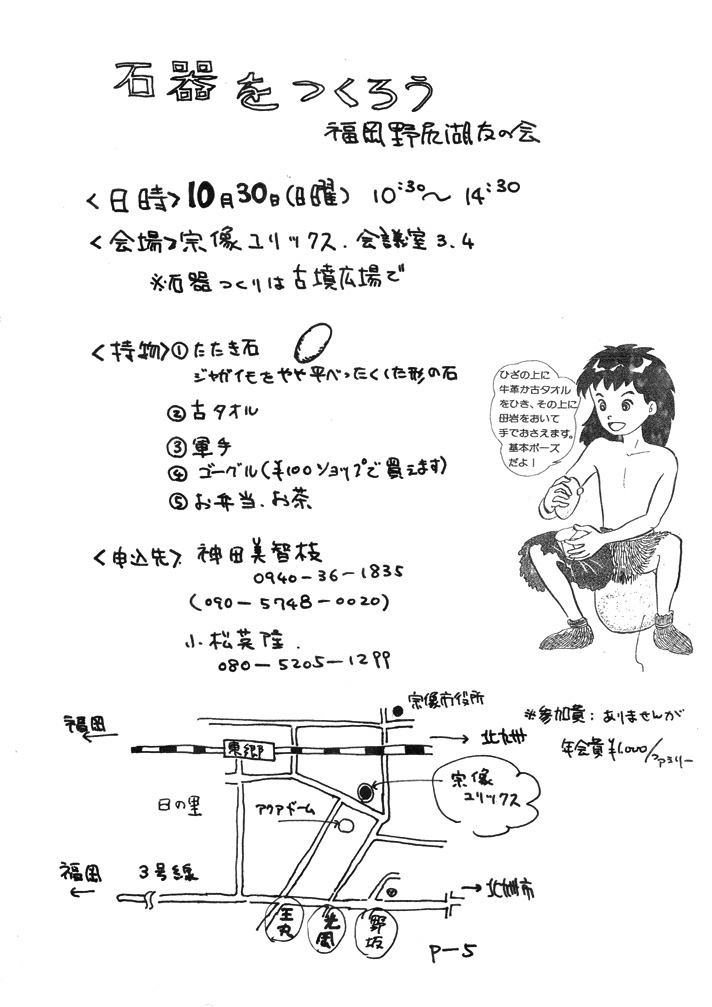 石器をつくろう
福岡野尻湖友の会
<日時>10月30日(日曜) 10:30〜14:30
<会場>宗像ユリックス.会議室3.4
※石器つくりは古墳広場で
<持物>①たたき石
ジャガイモをやや平べったくした形の石
②古タオル
③軍手
④ゴーグル(¥100ショップで買えます)
⑤お弁当.お茶
ひざの上に
牛革か古タオル
をひき、その上に
母岩をおいて
手でおさえます。
基本ポーズ
だよ!
<申込先>神田美智枝
0940-36-1835
(090-5748-0020)
小松英陸.
080-5205-1299
※参加費:ありませんが
年会費¥1,000/ファミリー
宗像市役所
福岡
東郷
北九州
宗像
ユリックス
日の里
アクアドーム
福岡
3号線
北九州市
王丸
光岡
野坂
P-5